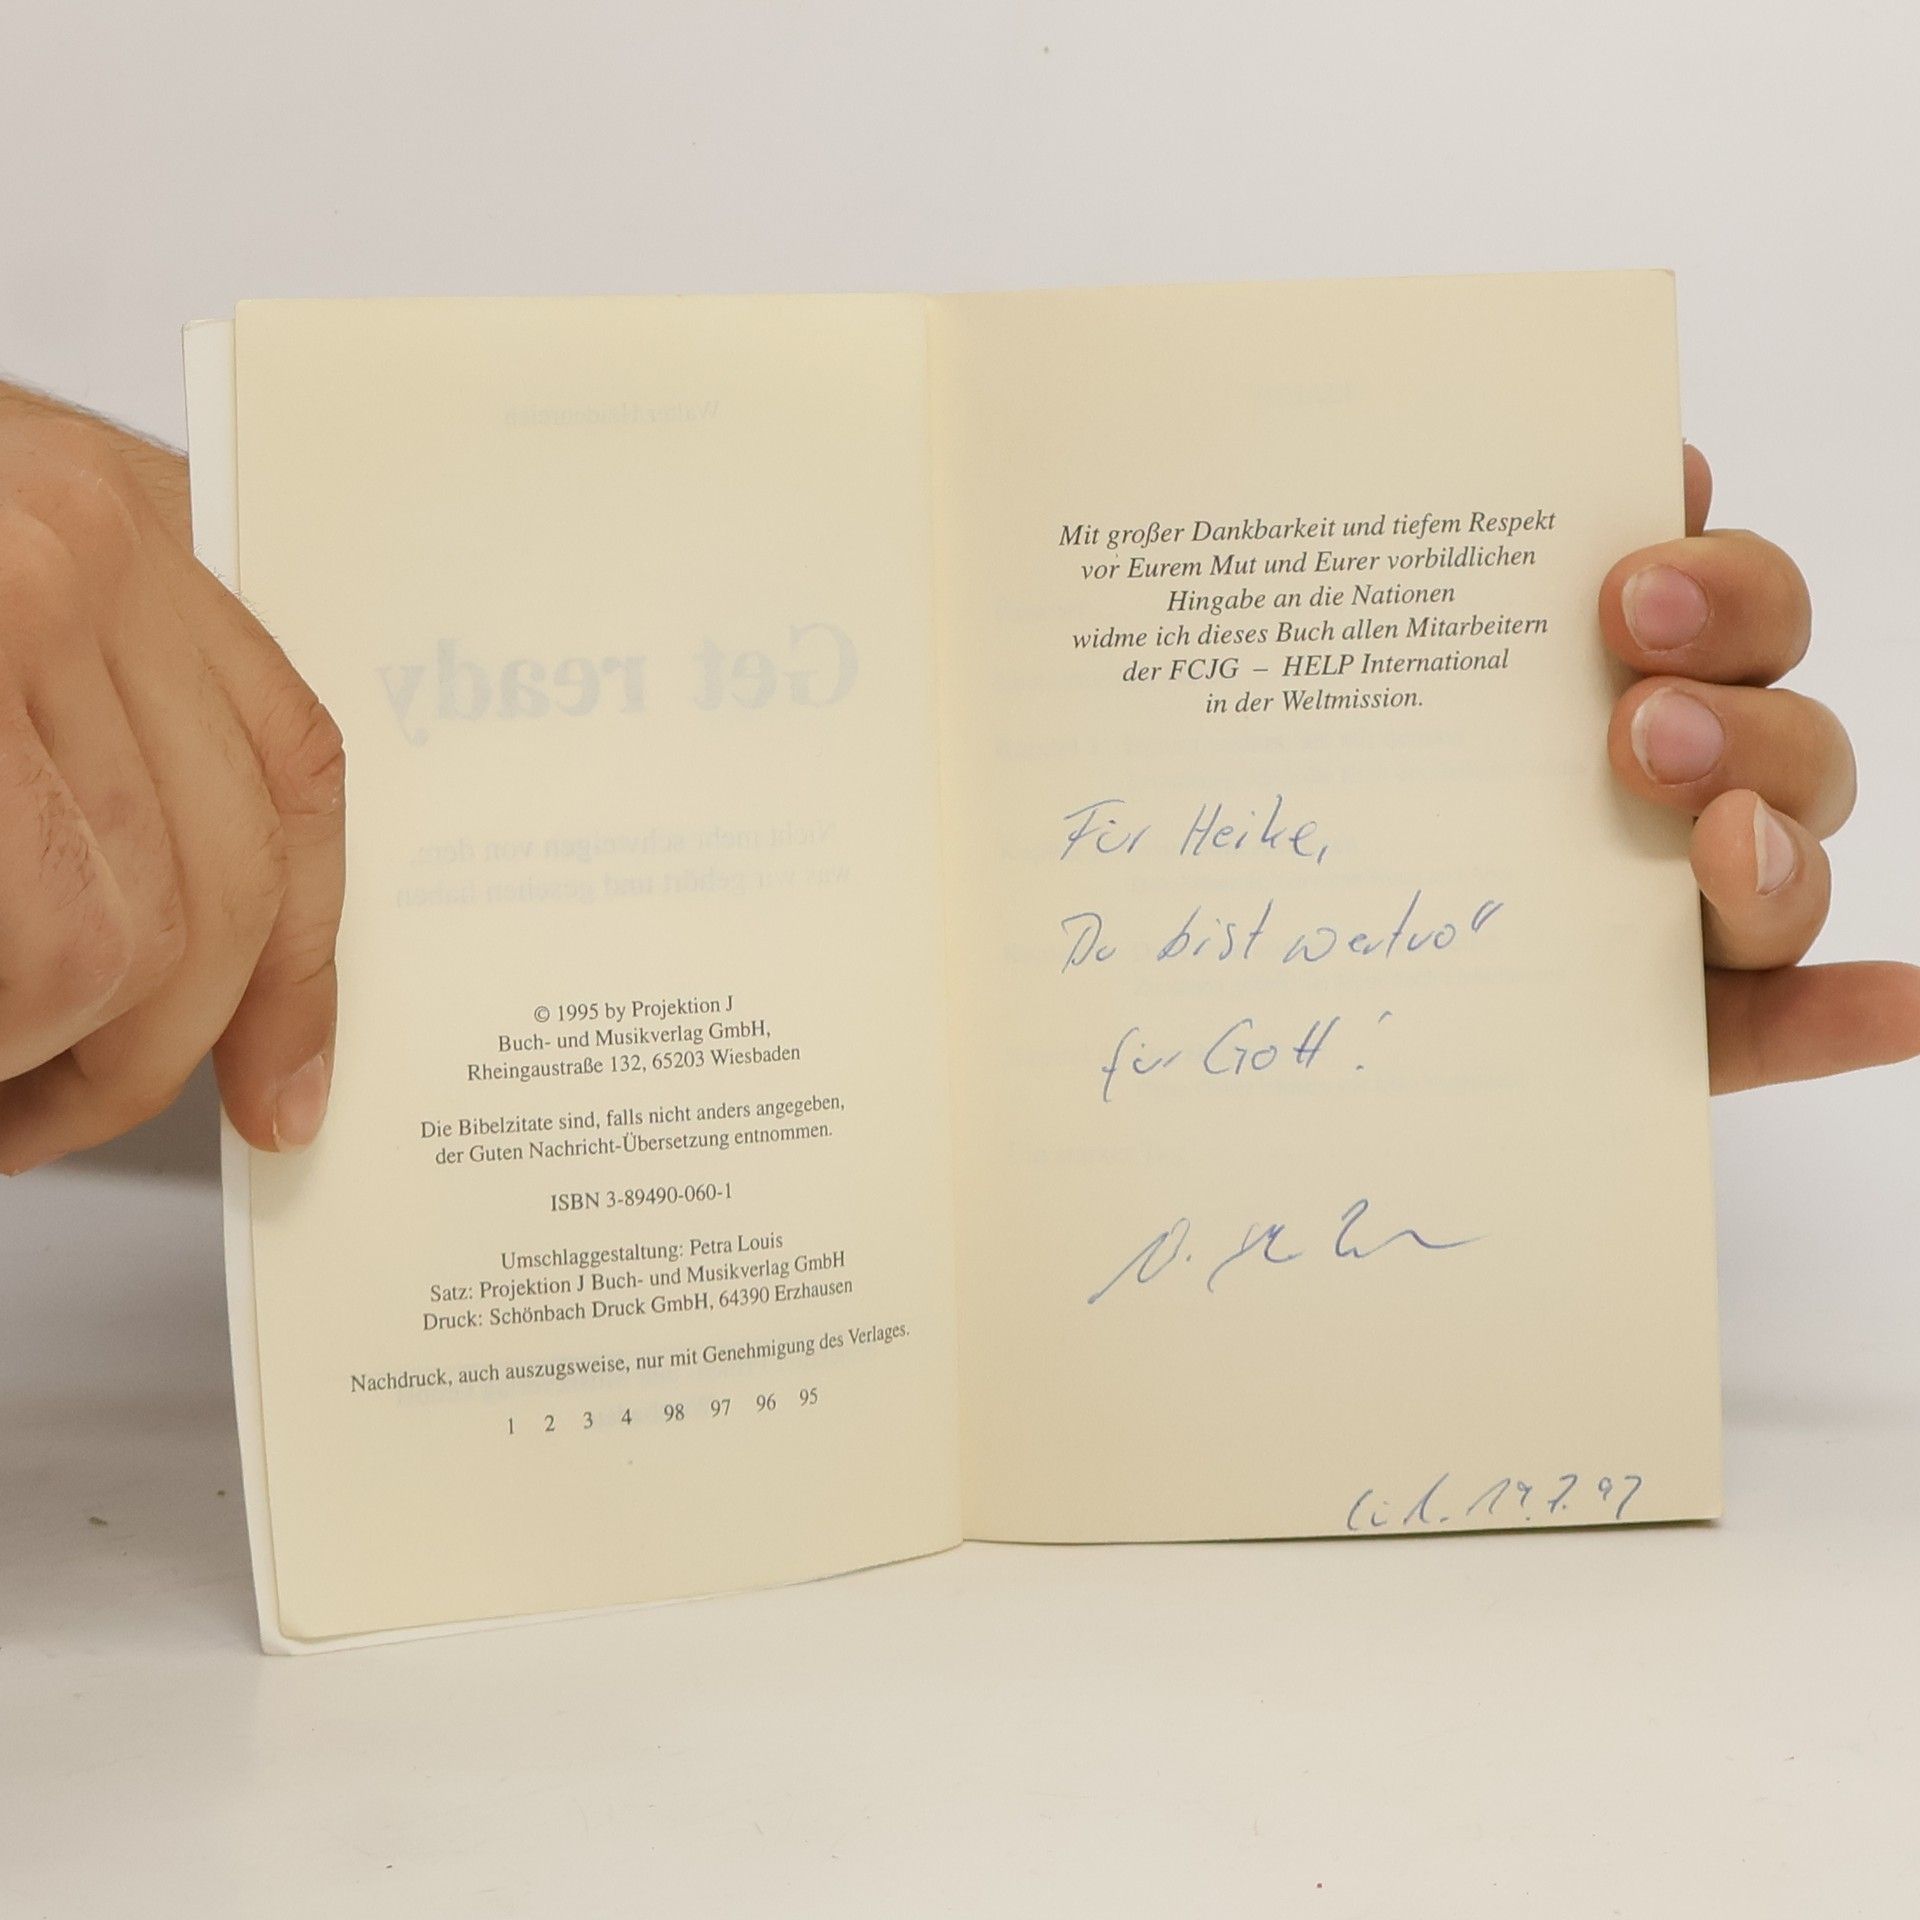 © 1995 by Projektion J
Buch- und Musikverlag GmbH,
Rheingaustraße 132, 65203 Wiesbaden
Die Bibelzitate sind, falls nicht anders angegeben,
der Guten Nachricht-Übersetzung entnommen.
ISBN 3-89490-060-1
Umschlaggestaltung: Petra Louis
Satz: Projektion J Buch- und Musikverlag GmbH
Druck: Schönbach Druck GmbH, 64390 Erzhausen
Nachdruck, auch auszugsweise, nur mit Genehmigung des Verlages.
1 2 3 4 98 97 96 95
Mit großer Dankbarkeit und tiefem Respekt
vor Eurem Mut und Eurer vorbildlichen
Hingabe an die Nationen
widme ich dieses Buch allen Mitarbeitern
der FCJG – HELP International
in der Weltmission.
Für Heike,
Du bist wertvoll
für Gott!
19.7.97